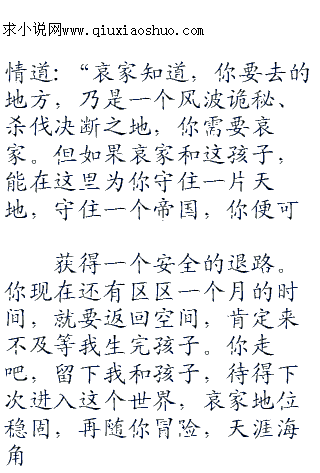 求小说网www.qiuxiaoshuo.com
情道：“哀家知道，你要去的
地方，乃是一个风波诡秘、
杀伐决断之地，你需要哀
家。但如果哀家和这孩子，
能在这里为你守住一片天
地，守住一个帝国，你便可
获得一个安全的退路。
你现在还有区区一个月的时
间，就要返回空间，肯定来
不及等我生完孩子。你走
吧，留下我和孩子，待得下
次进入这个世界，哀家地位
稳固，再随你冒险，天涯海
角